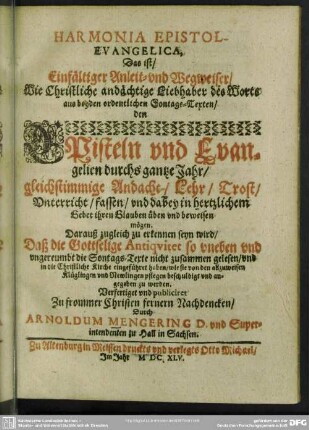 HARMONIA EPISTOL-
EVANGELICA,
Das ist/
Einfältiger Anleit- vnd Wegweiser/
Wie Christliche andächtige Liebhaber des Worts
aus beyden ordentlichen Sontags-Texten/
den
EPisteln vnd Evan-
gelien durchs gantze Jahr/
gleichstimmige Andacht-/Lehr/Trost/
Vnterricht/fassen/vnd dabey in hertzlichem
Gebet ihren Glauben üben vnd beweisen
mögen.
Darauß zugleich zu erkennen seyn wird/
Daß die Gottselige Antiqvitet so vneben vnd
vngereumbt die Sontags-Texte nicht zusammen gelesen/vnd
in die Christliche Kirche eingeführet haben/wie sie von den
Klüglingen vnd Newlingen pflegen beschuldigt vnd an-
gegeben zu werden.
Verfertiget vnd publiciret
Zu frommer Christen fernern Nachdencken/
Durch
ARNOLDUM MENGERING D. vnd Super-
intendenten zu Hall in Sachsen.
Zu Altenburg in Meissen druckts vnd verlegts Otto Michael/
Im Jahr M DC, XLV.